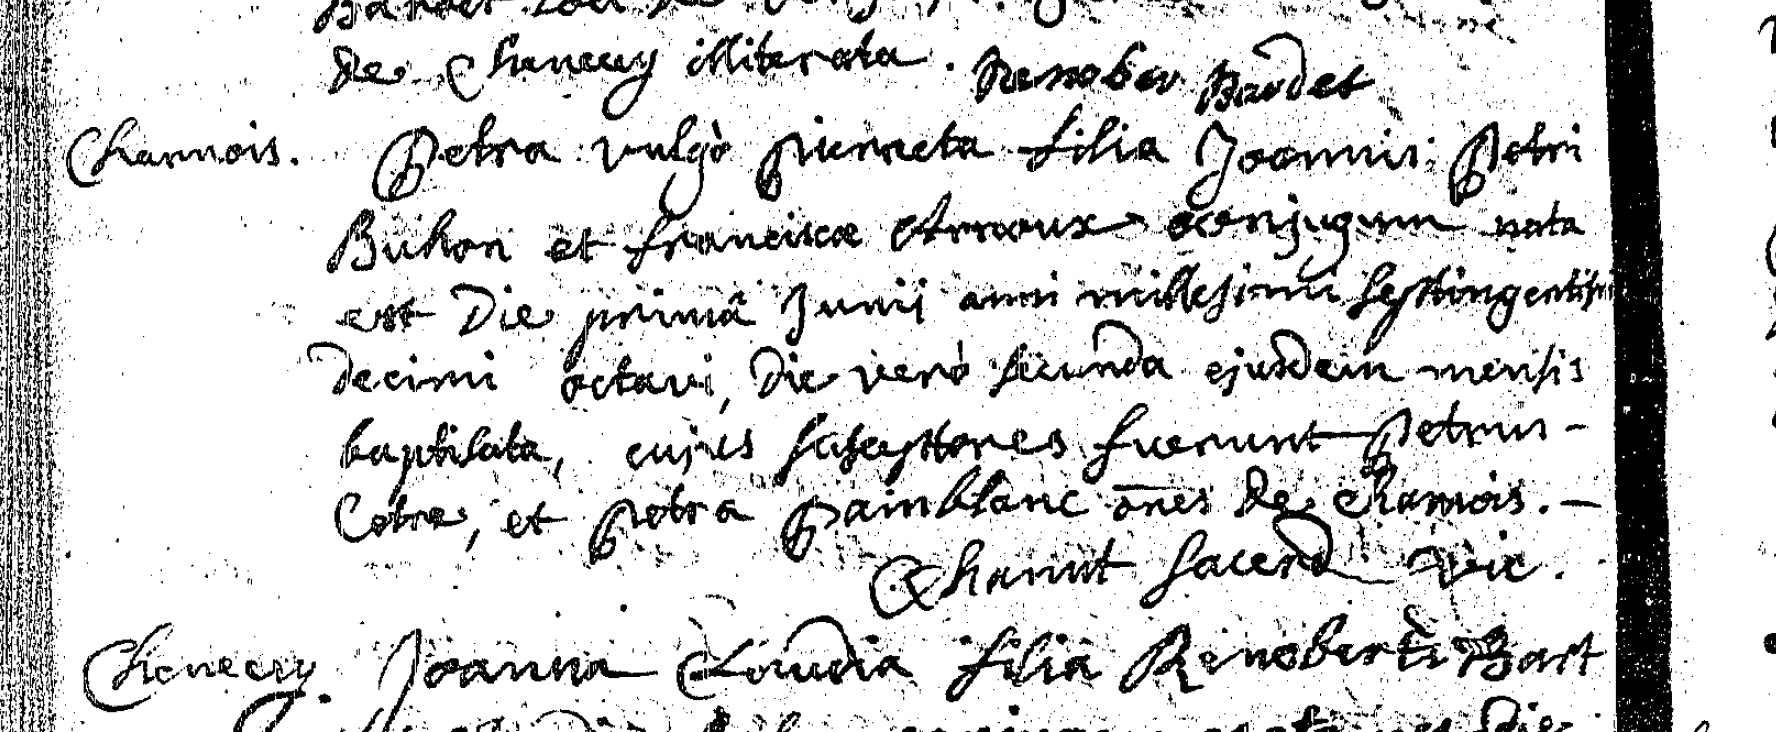 de Chenecey illiterata. Renober Bardet
Charnois. Petra vulgò Pierreta filia Joannis: Petri
Buhon et franciscæ Arnoux conjugum nata
est Die primâ Junii anni millesimi septingentesimi
decimi octavi, Die verò secunda ejusdem mensis
baptisata, cujus susceptores fuerunt Petrus -
Cetre, et Petra Painblanc oñes de Charnois. -
Sacerd Vic.
Chenecey. Joanna Claudia filia Renoberti Bart